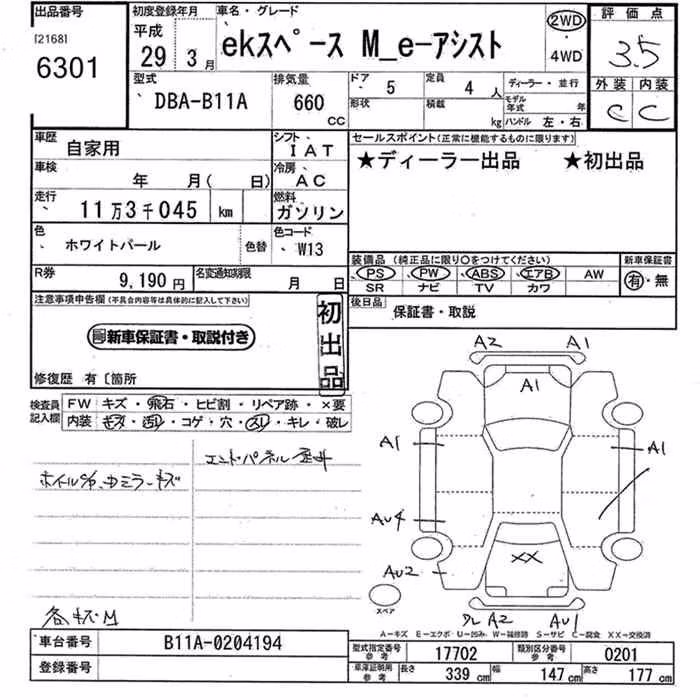 出品番号 初度登録年月 車名・グレード 評価点
[2168]
6301
平成 29年 3月
ekスペース M_e-アシスト
2WD・4WD
3.5
外装 内装
C C
型式 排気量 ドア 5 定員 4人 ディーラー・並行
DBA-B11A 660cc 形状 積載 kg モデル年式 年
ハンドル 左・右
車歴 自家用 シフト、IAT セールスポイント(正常に機能するものに限ります)
★ディーラー出品 ★初出品
車検 年 月( 日) 冷房、AC
走行 11万3千045 km 燃料 ガソリン
色 ホワイトパール 色替 色コード、W13
装備品(純正品に限り○をつけてください) 新車保証書
PS PW ABS エアB AW 有・無
SR ナビ TV カワ
R券 9,190円 名変通知期限 月 日
後日品 保証書・取説
注意事項申告欄(不具合内容等は具体的に記入して下さい)
初出品
新車保証書・取説付き
修復歴 有〔箇所
検査員記入欄 FW キズ・飛石・ヒビ割・リペア跡・×要
内装 キズ・汚レ・コゲ・穴・スレ・キレ・破レ
エンドパネル
ホイルキズ、
ミラーキズ
各キズM
A2 A1
A1
A1 A1
AU4
XX
AU2
スペア
A2 AU1
A-キズ E-エクボ U-凹み W-補修跡 S-サビ C-腐食 XX-交換済
車台番号 B11A-0204194
登録番号
型式指定番号 参考 17702 類別区分番号 参考 0201
車庫証明用 参考 長さ 339cm 幅 147cm 高さ 177cm